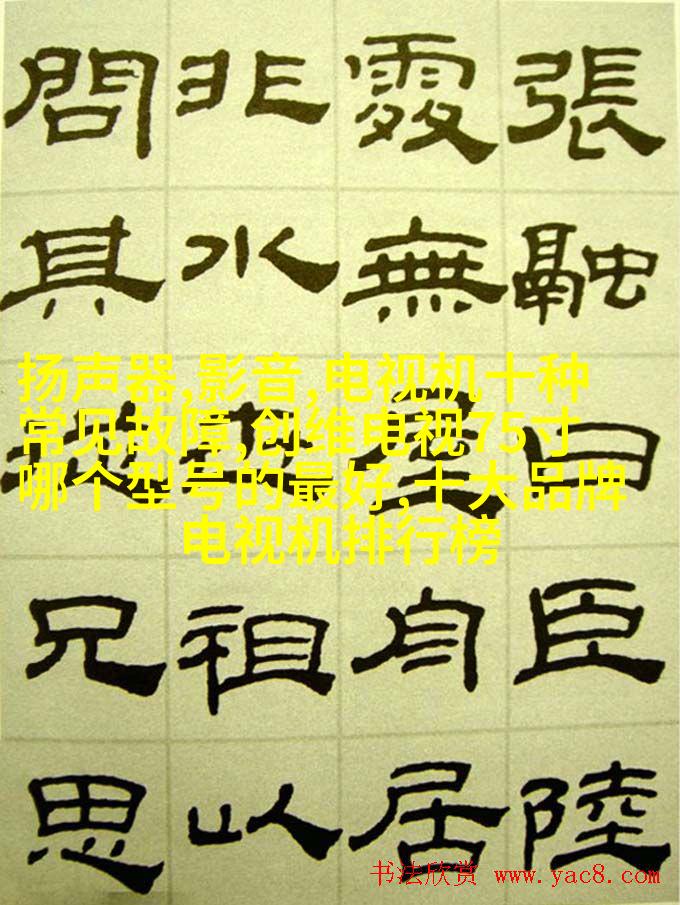 張融曰臣陸
處無屋舟居
非水祖以
問其兄思
扬声器,影音,电视机十种
常见故障,创维电视75寸
哪个型号的最好,十大品牌
电视机排行榜
书法欣赏 www.yac8.com